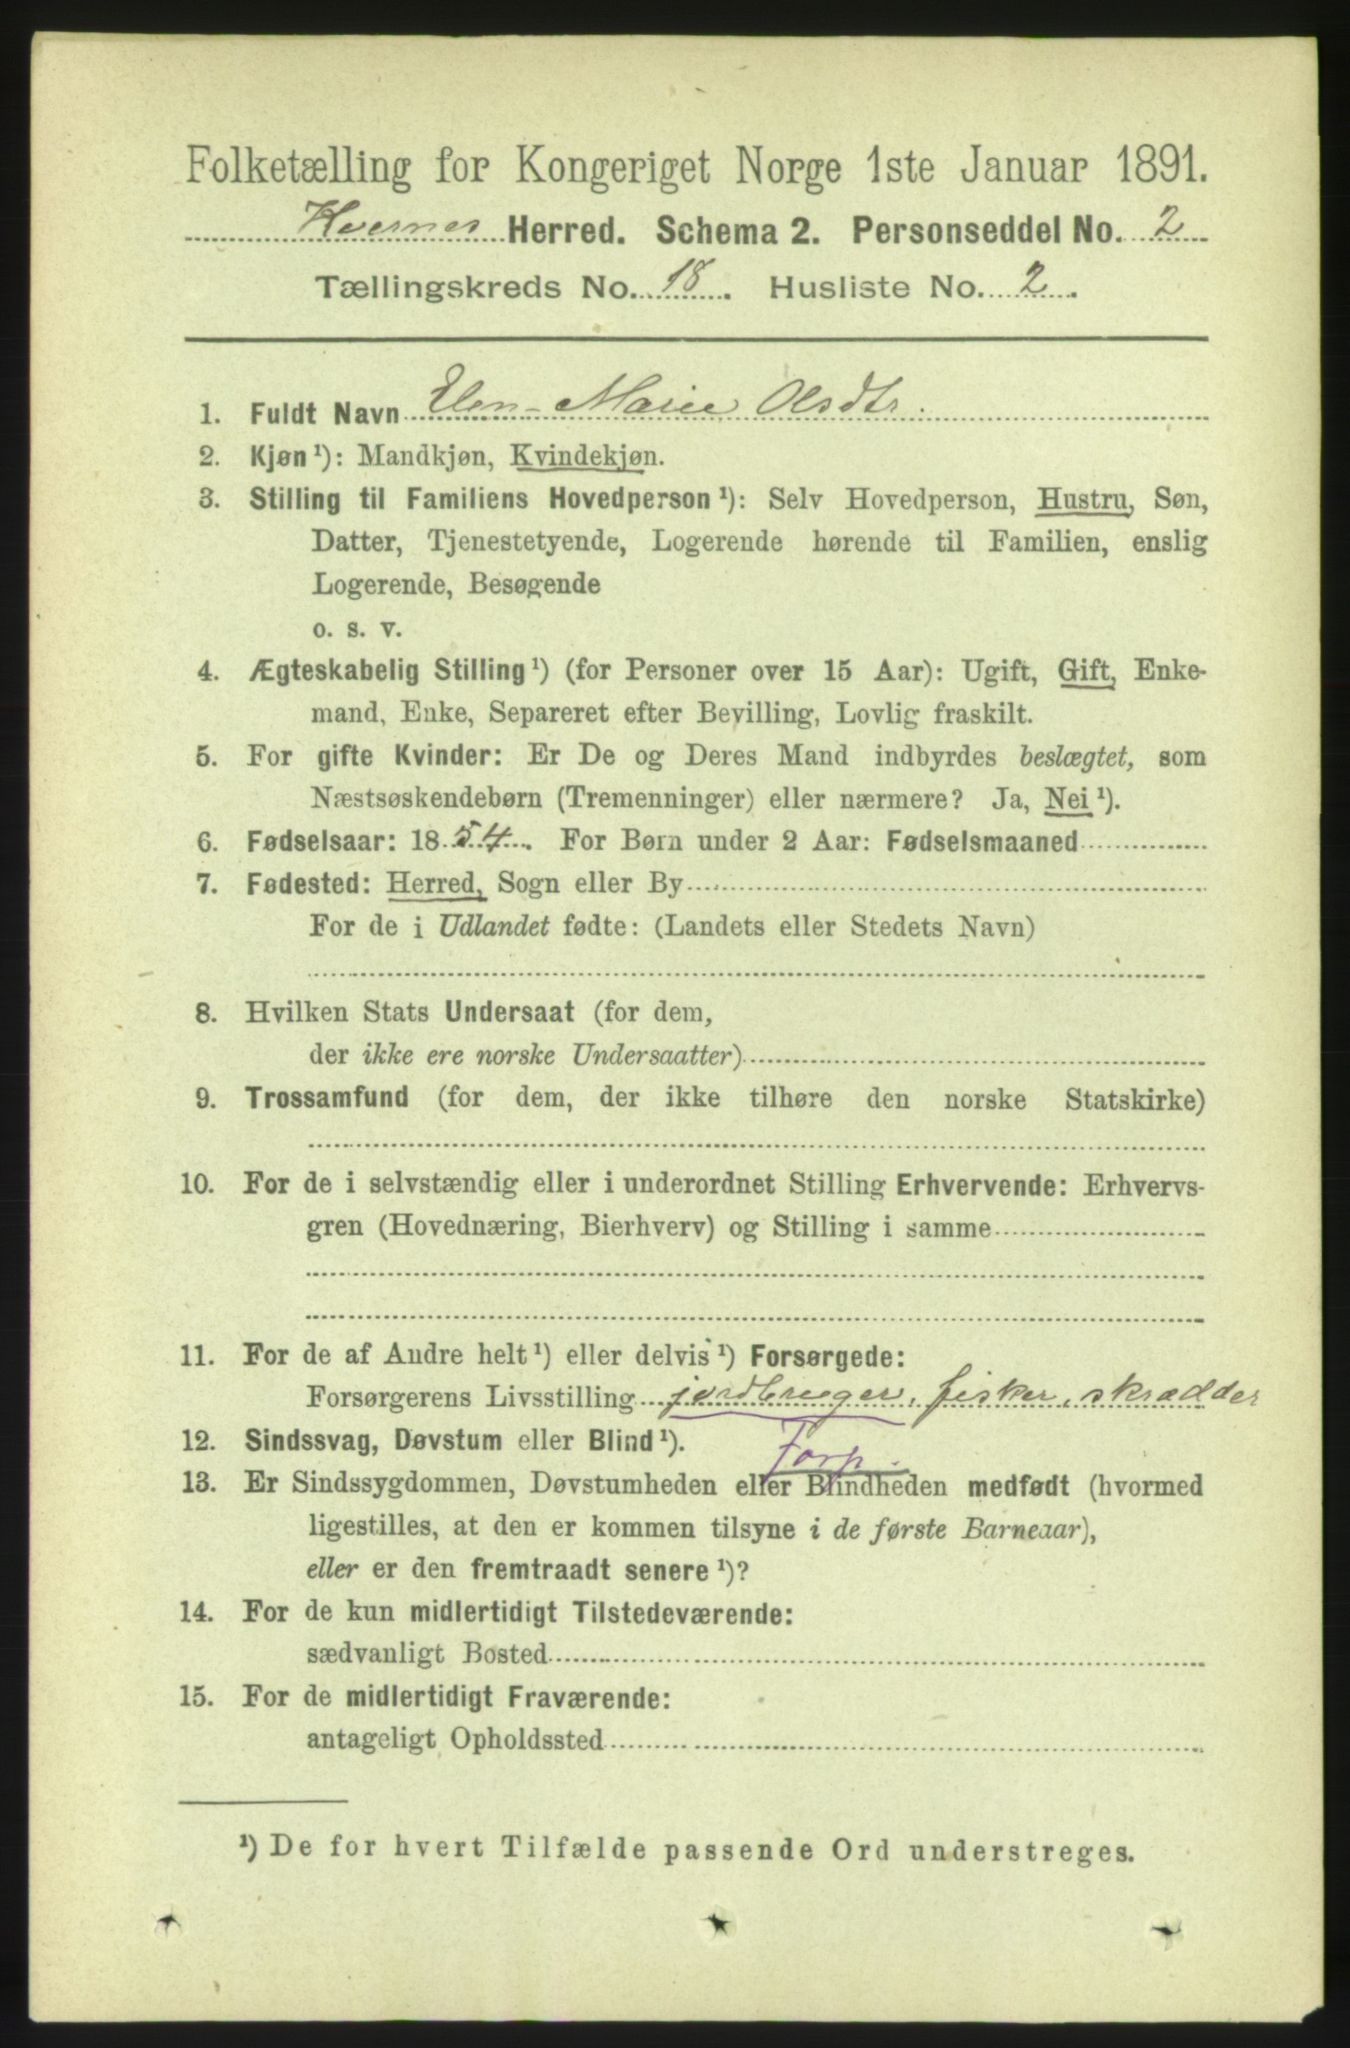 Folketælling for Kongeriget Norge 1ste Januar 1891.
Kvernes Herred. Schema 2. Personseddel No. 2
Tællingskreds No. 18. Husliste No. 2.
1. Fuldt Navn Elen Marie Olsdtr.
2. Kjøn¹): Mandkjøn, Kvindekjøn.
3. Stilling til Familiens Hovedperson¹): Selv Hovedperson, Hustru, Søn,
Datter, Tjenestetyende, Logerende hørende til Familien, enslig
Logerende, Besøgende
o. s. v.
4. Ægteskabelig Stilling¹) (for Personer over 15 Aar): Ugift, Gift, Enke-
mand, Enke, Separeret efter Bevilling, Lovlig fraskilt.
5. For gifte Kvinder: Er De og Deres Mand indbyrdes beslægtet, som
Næstsøskendebørn (Tremenninger) eller nærmere? Ja, Nei¹).
6. Fødselsaar: 1854. For Børn under 2 Aar: Fødselsmaaned
7. Fødested: Herred, Sogn eller By
For de i Udlandet fødte: (Landets eller Stedets Navn)
8. Hvilken Stats Undersaat (for dem,
der ikke ere norske Undersaatter)
9. Trossamfund (for dem, der ikke tilhøre den norske Statskirke)
10. For de i selvstændig eller i underordnet Stilling Erhvervende: Erhvervs-
gren (Hovednæring, Bierhverv) og Stilling i samme
11. For de af Andre helt¹) eller delvis¹) Forsørgede:
Forsørgerens Livsstilling jordbruger, fisker, skrædder
12. Sindssvag, Døvstum eller Blind¹). Forp.
13. Er Sindssygdommen, Døvstumheden eller Blindheden medfødt (hvormed
ligestilles, at den er kommen tilsyne i de første Barneaar),
eller er den fremtraadt senere¹)?
14. For de kun midlertidigt Tilstedeværende:
sædvanligt Bosted
15. For de midlertidigt Fraværende:
antageligt Opholdssted
¹) De for hvert Tilfælde passende Ord understreges.